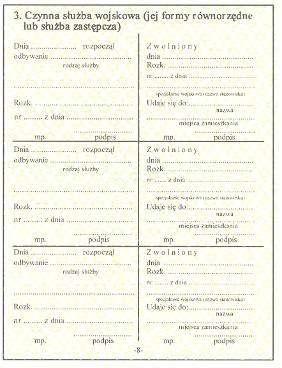 3. Czynna służba wojskowa (jej formy równorzędne
lub służba zastępcza)
Dnia .................... rozpoczął
odbywanie ..............................
rodzaj służby
Rozk. ..............................
nr ......... z dnia ....................
mp. podpis
Zwolniony
dnia ..............................
Rozk. ..............................
nr ...... z dnia ....................
specjalność wojskowa (nazwa stanowiska)
Udaje się do: ....................
nazwa
miejsca zamieszkania
mp. podpis
Dnia .................... rozpoczął
odbywanie ..............................
rodzaj służby
Rozk. ..............................
nr ......... z dnia ....................
mp. podpis
Zwolniony
dnia ..............................
Rozk. ..............................
nr ...... z dnia ....................
specjalność wojskowa (nazwa stanowiska)
Udaje się do: ....................
nazwa
miejsca zamieszkania
mp. podpis
Dnia .................... rozpoczął
odbywanie ..............................
rodzaj służby
Rozk. ..............................
nr ......... z dnia ....................
mp. podpis
Zwolniony
dnia ..............................
Rozk. ..............................
nr ...... z dnia ....................
specjalność wojskowa (nazwa stanowiska)
Udaje się do: ....................
nazwa
miejsca zamieszkania
mp. podpis
-8-